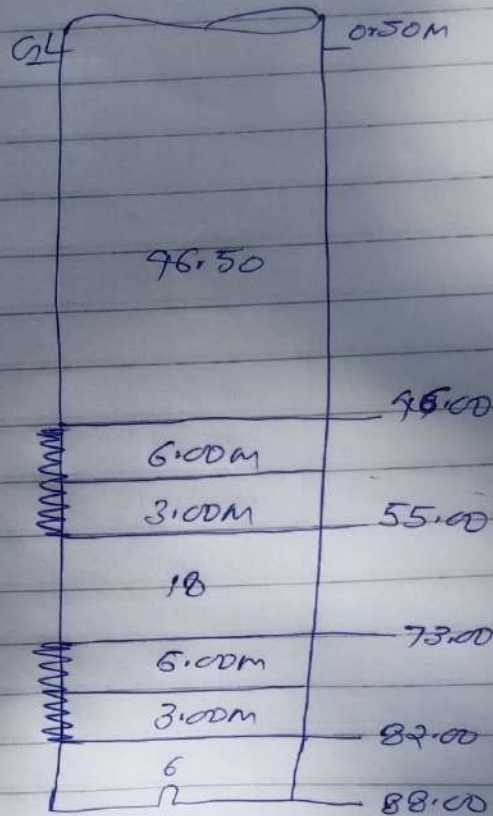 GL 0.50M
46.50
46.00
6.00m
3.00M
55.00
18
73.00
6.00m
3.00M
82.00
6
88.00